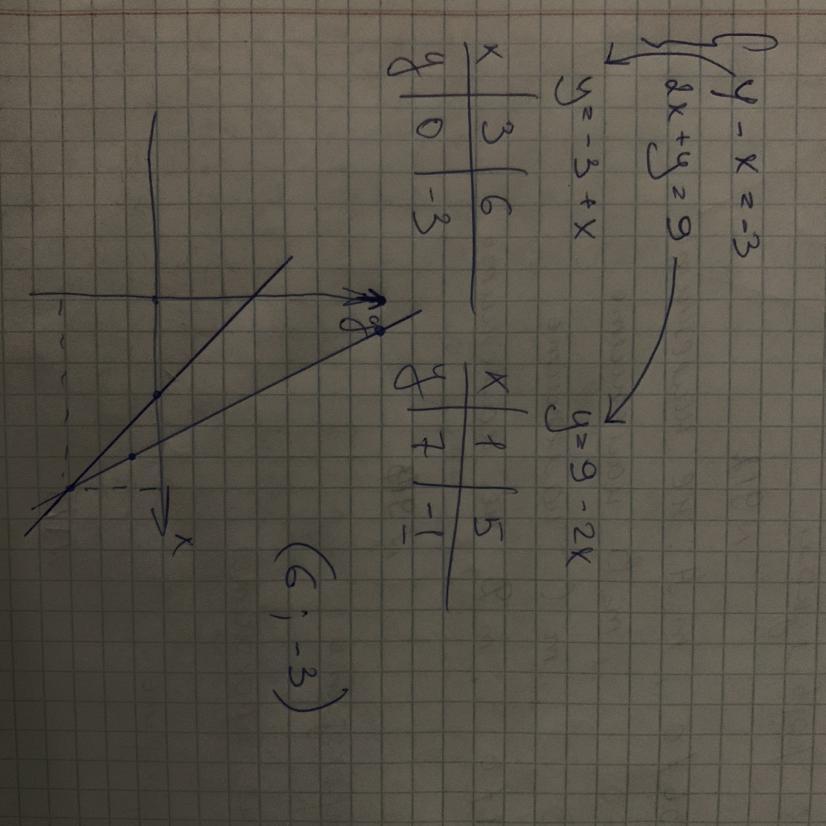 y - x = -3
2x + y = 9
y = -3 + x
x 3 6
y 0 -3
y = 9 - 2x
x 1 5
y 7 -1
y
x
(6 ; -3)